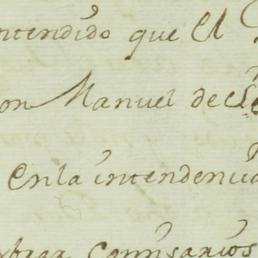 ntendido que el
on Manuel de
enla intendencia
Comisarios